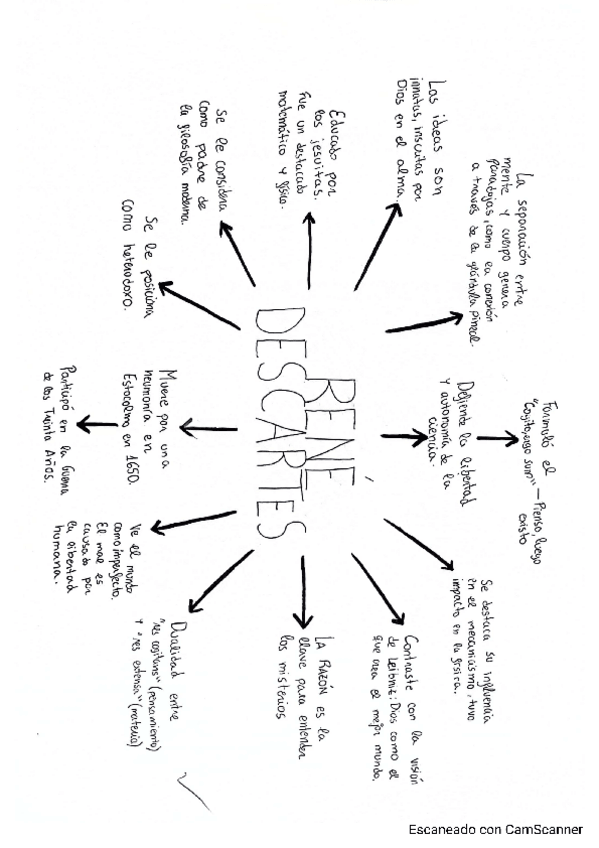 RENÉ
DESCARTES
Formuló el
"Cogito, ergo sum" — Pienso, luego
existo
Defiende la libertad
y autonomía de la
ciencia.
Se destaca su influencia
en el mecanicismo, tuvo
impacto en la física.
Contraste con la visión
de Leibniz: Dios como el
que crea el mejor mundo.
LA RAZÓN es la
llave para entender
los misterios
Dualidad entre
"res cogitans" (pensamiento)
y "res extensa" (materia)
Ve el mundo
como imperfecto.
El mal es
causado por
la libertad
humana.
Muere por una
neumonía en
Estocolmo en 1650.
Participó en la Guerra
de los Treinta Años.
Se le posiciona
como heterodoxo.
Se le considera
como padre de
la filosofía moderna.
Educado por
los jesuitas.
Fue un destacado
matemático y físico.
Las ideas son
innatas, inscritas por
Dios en el alma.
La separación entre
mente y cuerpo genera
paradojas, como la conexión
a través de la glándula pineal.
Escaneado con CamScanner